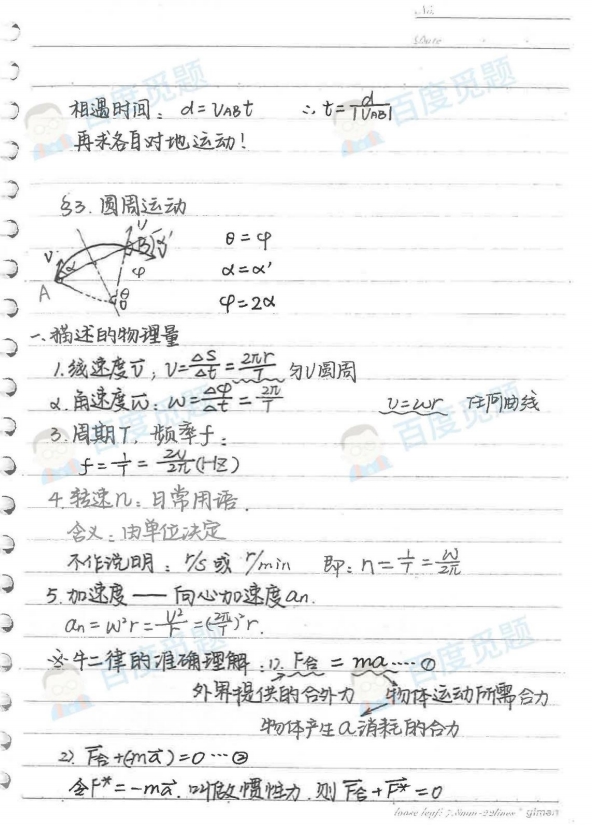 No.
Date
相遇时间: d=VABt ∴t=d/|VAB|
再求各自对地运动!
§3. 圆周运动
V
V B α'
α
A φ θ
θ=φ
α=α'
φ=2α
一、描述的物理量
1.线速度v̄; v=ΔS/Δt=2πr/T 匀V圆周
2.角速度w̄: w=Δφ/Δt=2π/T v=wr 任何曲线
3.周期T, 频率f:
f=1/T=w/2π(HZ)
4.转速n: 日常用语.
含义: 由单位决定
不作说明: r/s或r/min 即: n=1/T=w/2π
5.加速度——向心加速度an.
an=w²r=v²/r=(2π/T)²r.
※牛二律的准确理解: 1). F合=ma……①
外界提供的合外力 物体运动所需合力
物体产生a消耗的合力
2). F合+(-ma)=0…②
令F*=-ma, 叫做惯性力, 则F合+F*=0
loose leaf: 7.8mm-22lines gimen
百度觅题
百度觅题
百度觅题
百度觅题
百度觅题
百度觅题